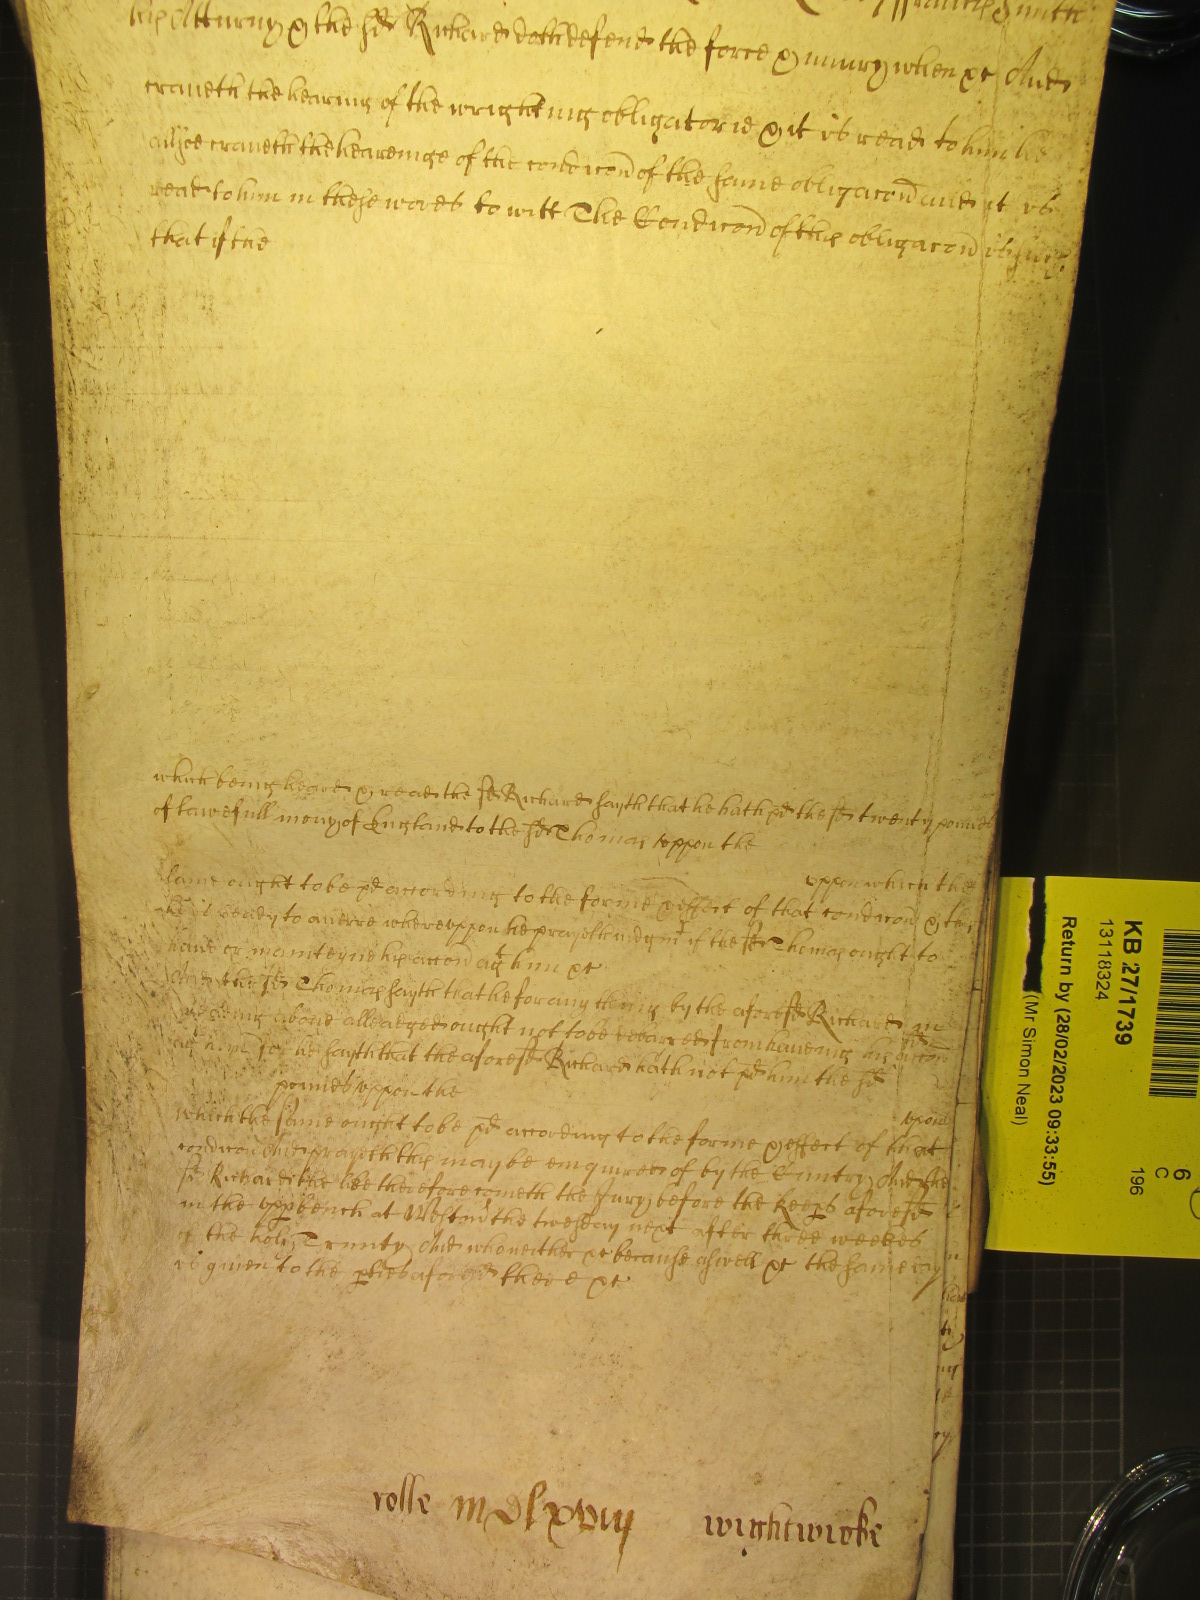 Francis Smith
his Atturny & the sd Richard doth defend the force & iniury when &c And
craueth the hearing of the wrighting obligatorie & it is read to him he
alsoe craueth the heareinge of the condicon of the same obligacon and it is
read to him in these words to witt The Condicon of this obligacon is such
that if the
which being heard & read the sd Richard sayth that he hath pd the sd twenty pounds
of lawefull mony of England to the sd Thomas vppon the
vppon which the
same ought to be pd according to the forme & effect of that condicon & this
he is ready to auerre wherevppon he prayeth iudgmt if the sd Thomas ought to
haue or mainteyne his accon agt him &c
And the sd Thomas sayth that he for any thing by the aforesd Richard in
pleading aboue alleadged ought not to be debarred from haueing his accon
agt him for he sayth that the aforesd Richard hath not pd him the sd
pounds vppon the
vpon
which the same ought to be pd according to the forme & effect of that
condicon And prayeth this may be enquired of by the Cuntry And the
sd Richard the like therefore cometh the Jury before the Keeps aforesd
in the vpp bench at Westmr the twesday next after three weekes
of the holy Trinity And who neither &c because aswell &c the same day
is giuen to the pties aforesd there &c
rolle mdlxviij wightwicke
KB 27/1739
13118324
Return by (28/02/2023 09:33:55)
(Mr Simon Neal)
196
C
6